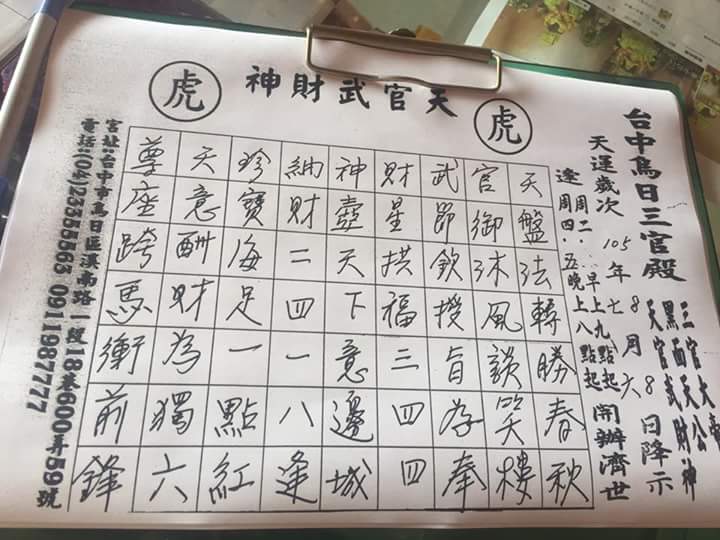 台中烏日三官殿
三官大帝
黑面天公
天官武財神
天運歲次 105年七8月六8日降示
逢周二‧早上九點起
周四‧五晚上八點起
開辦濟世
虎
天官武財神
虎
天盤法轉勝春秋
官御沐風談笑樓
武即欽授旨奉
財星拱福三四四
神天下意邊城
納財二四一八逢
珍寶海足一點紅
天意酬財為獨六
尊座跨馬衝前鋒
宮址:台中市烏日區溪南路一段18巷600弄59號
電話:(04)23355563 0911987777